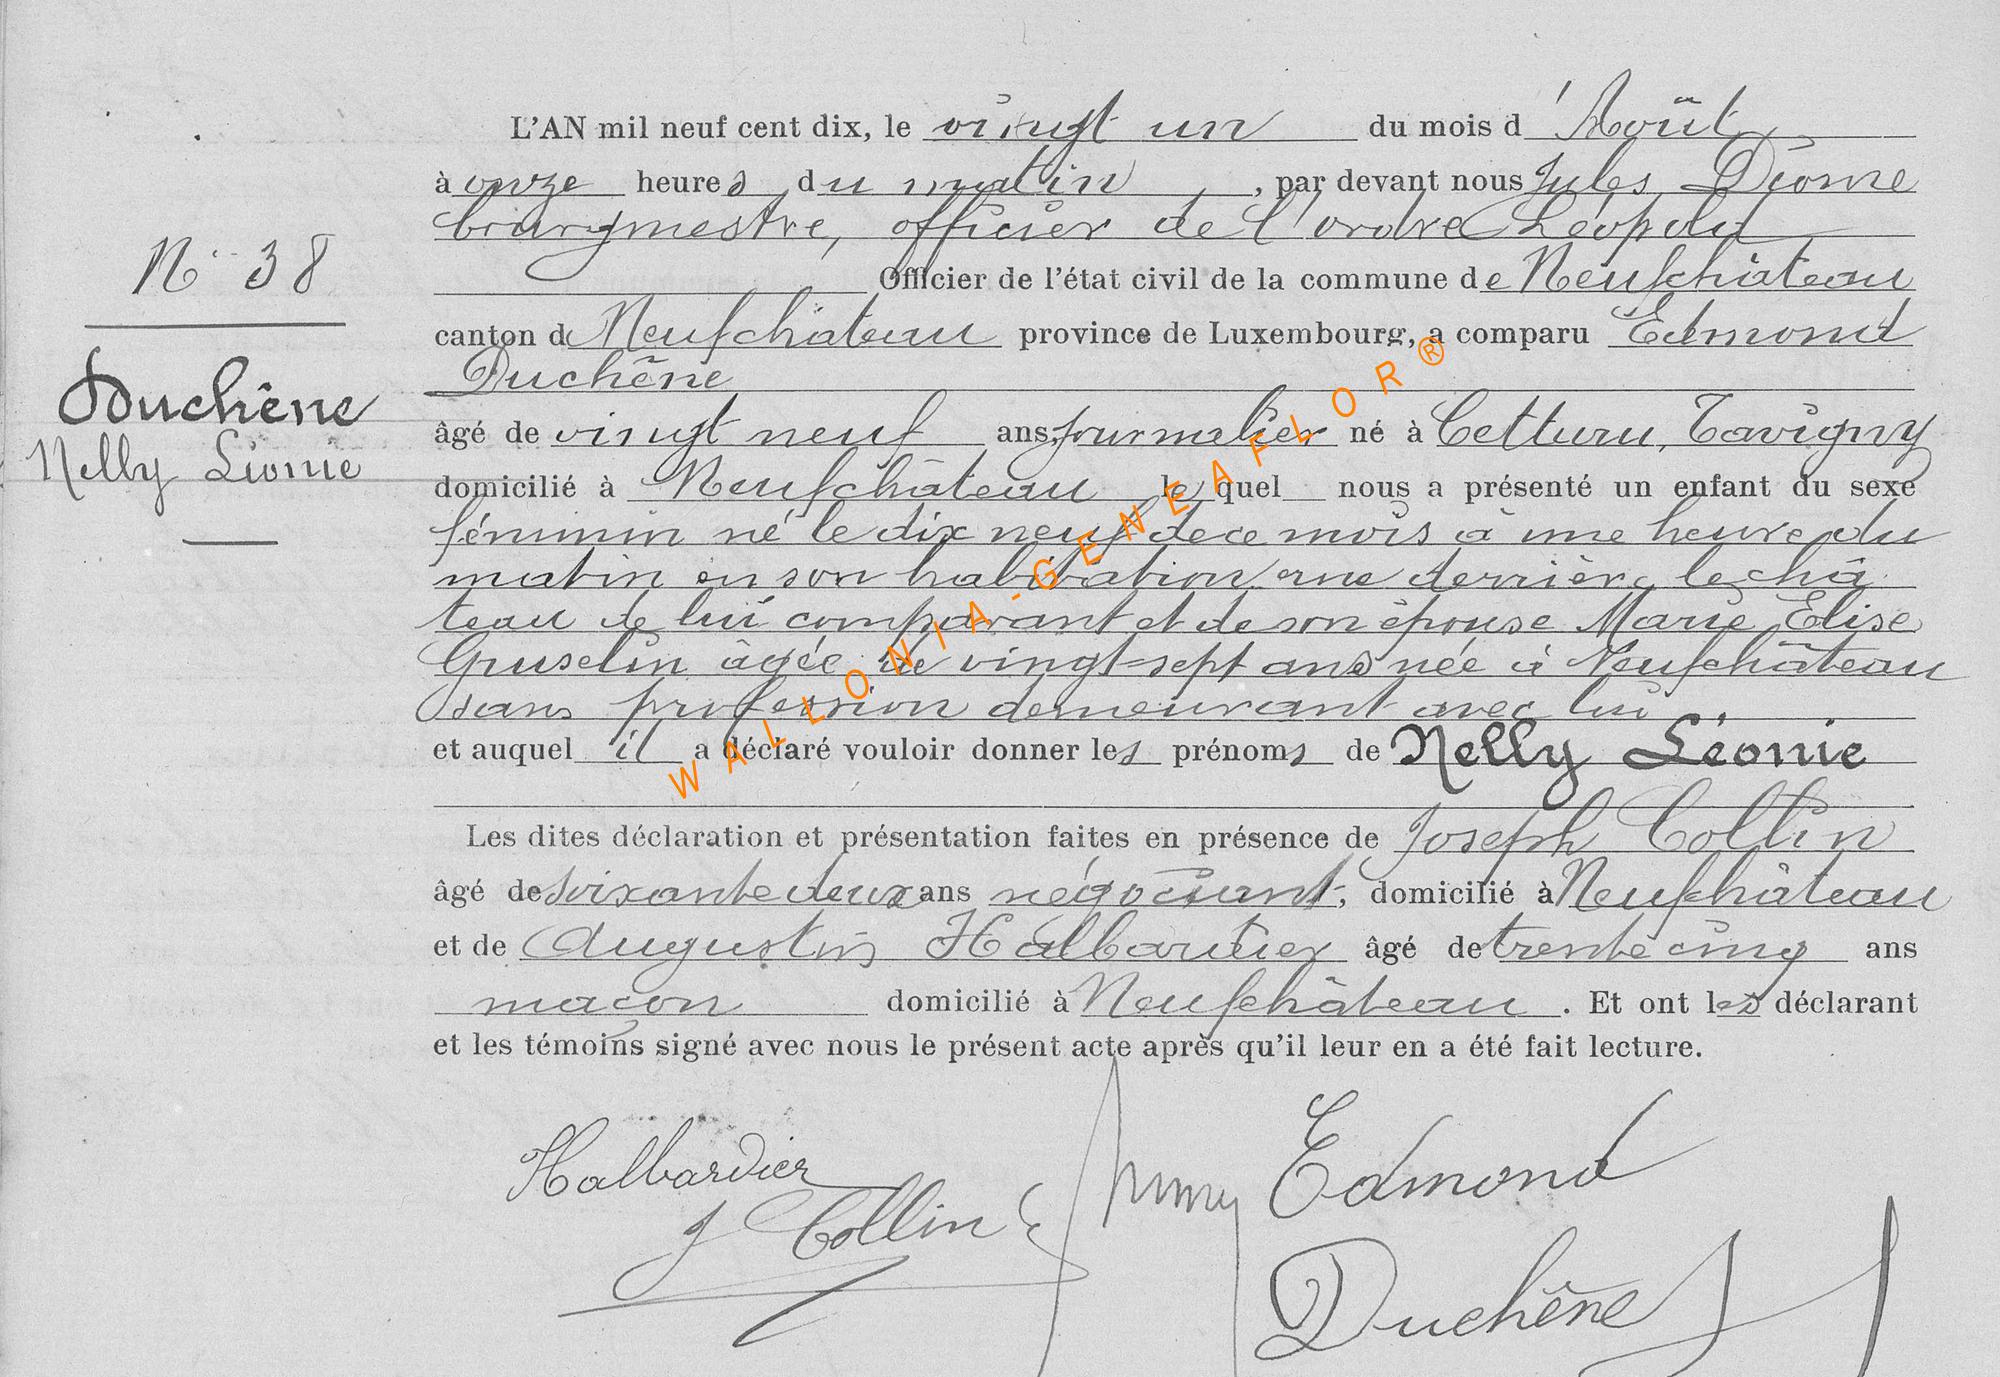 L'AN mil neuf cent dix, le vingt un du mois d'Août
à onze heures du matin, par devant nous Jules Diorne
bourgmestre, officier de l'ordre Léopold
Officier de l'état civil de la commune de Neufchâteau
canton de Neufchâteau province de Luxembourg, a comparu Edmond
Duchêne
âgé de vingt neuf ans, journalier né à Cetturu, Tavigny
domicilié à Neufchâteau lequel nous a présenté un enfant du sexe
féminin né le dix neuf de ce mois à une heure du
matin en son habitation rue derrière le châ
teau de lui comparant et de son épouse Marie Elise
Guselin âgée de vingt-sept ans née à Neufchâteau
sans profession demeurant avec lui
et auquel il a déclaré vouloir donner les prénoms de Nelly Léonie
Les dites déclaration et présentation faites en présence de Joseph Collin
âgé de soixante deux ans négociant, domicilié à Neufchâteau
et de Augustin Halbardier âgé de trente cinq ans
maçon domicilié à Neufchâteau. Et ont les déclarant
et les témoins signé avec nous le présent acte après qu'il leur en a été fait lecture.
N° 38
Duchêne
Nelly Léonie
Halbardier
J Collin
Edmond
Duchêne
WALLONIA-GENEAFLOR®